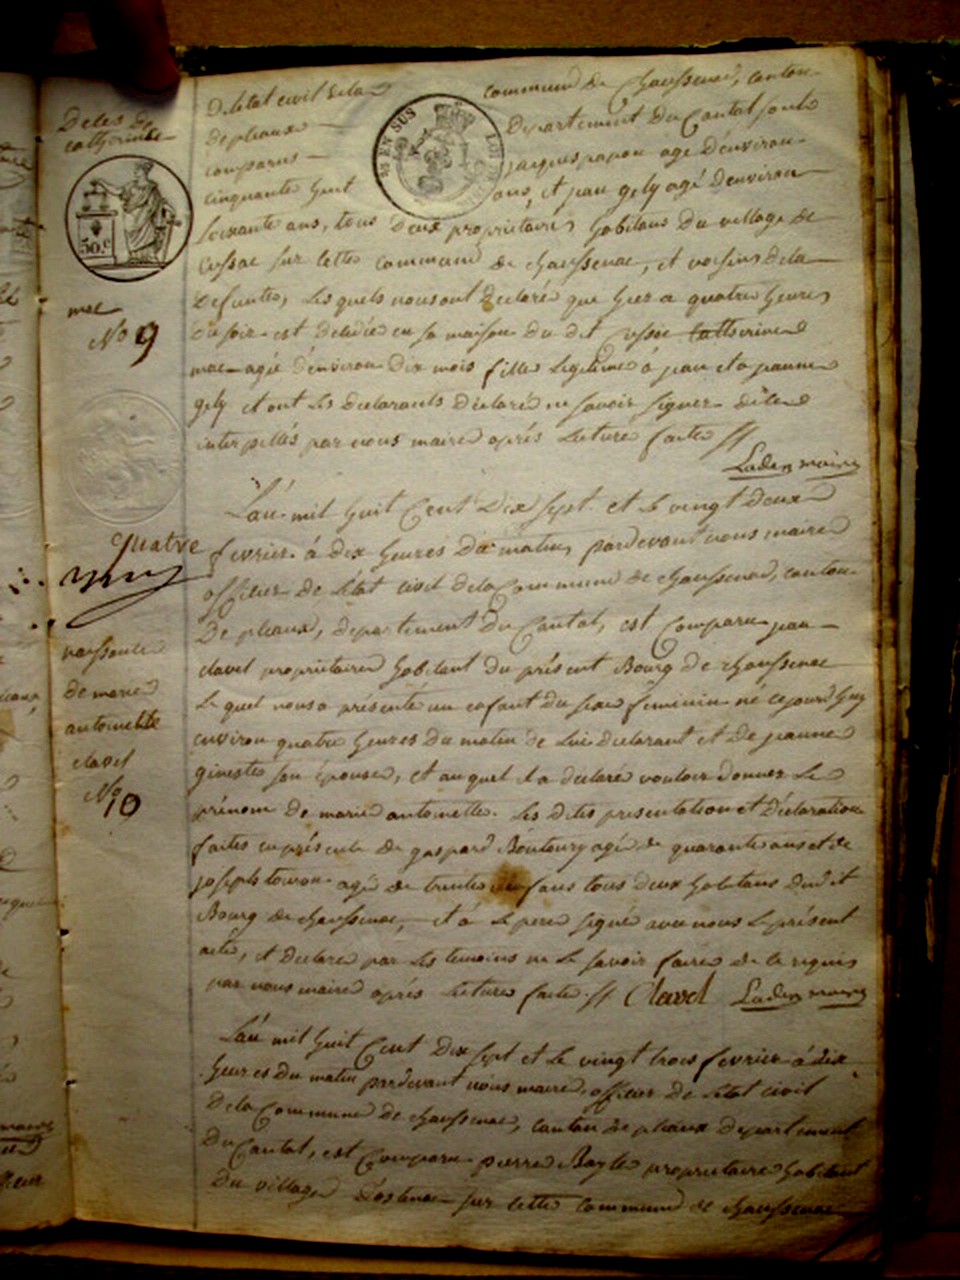 Décès de
catherinne
50.c
mac
No 9
quatre
naissance
de marie
antoinette
clavel
No 10
EN SUS
LOI
De létat civil dela commune De chaussenac, canton
depleaux Département Du Cantal sont
comparus jacques papon agé d'environ
cinquante huit ans, et jean gely agé denviron
soixante ans, tous deux propriétaires habitans Du village de
Cussac sur cette commune de chaussenac, et voisins dela
Defunte, les quels nous ont Declaré que hier a quatre heures
du soir est décédée en sa maison du dit Cussac catherinne
mac agée d'environ dix mois fille légitime à jean et a jeanne
gely et ont les declarants déclaré ne savoir signer de ce
interpellés par nous maire après lecture faite //
Laden maire
L'an mil huit Cent Dix sept et le vingt deux
fevrier à dix heures Du matin, pardevant nous maire
officier de l'état civil dela Commune de chaussenac, canton
De pleaux, département Du Cantal, est Comparu jean
clavel propriétaire habitant du présent Bourg de chaussenac
le quel nous a présenté un enfant du sexe feminin né cejourd'huy
environ quatre heures Du matin de lui Declarant et De jeanne
gineste son épouse, et au quel il a déclaré vouloir donner le
prénom de marie antoinette. les dites presentation et Déclaration
faites en présence de gaspard Boutoury agé de quarante ans et de
joseph agé de trente ans tous deux habitans dudit
Bourg de chaussenac, et a le pere signé avec nous le présent
acte, et declaré par les temoins ne le savoir faire de ce requis
par nous maire après lecture faite // Clavel Laden maire
L'an mil huit Cent Dix sept et le vingt trois fevrier à dix
heures Du matin pardevant nous maire, officier de l'état civil
De la Commune de chaussenac, canton de pleaux département
Du Cantal, est Comparu pierre Bayle propriétaire habitant
Du village d'ostenac sur cette commune de chaussenac